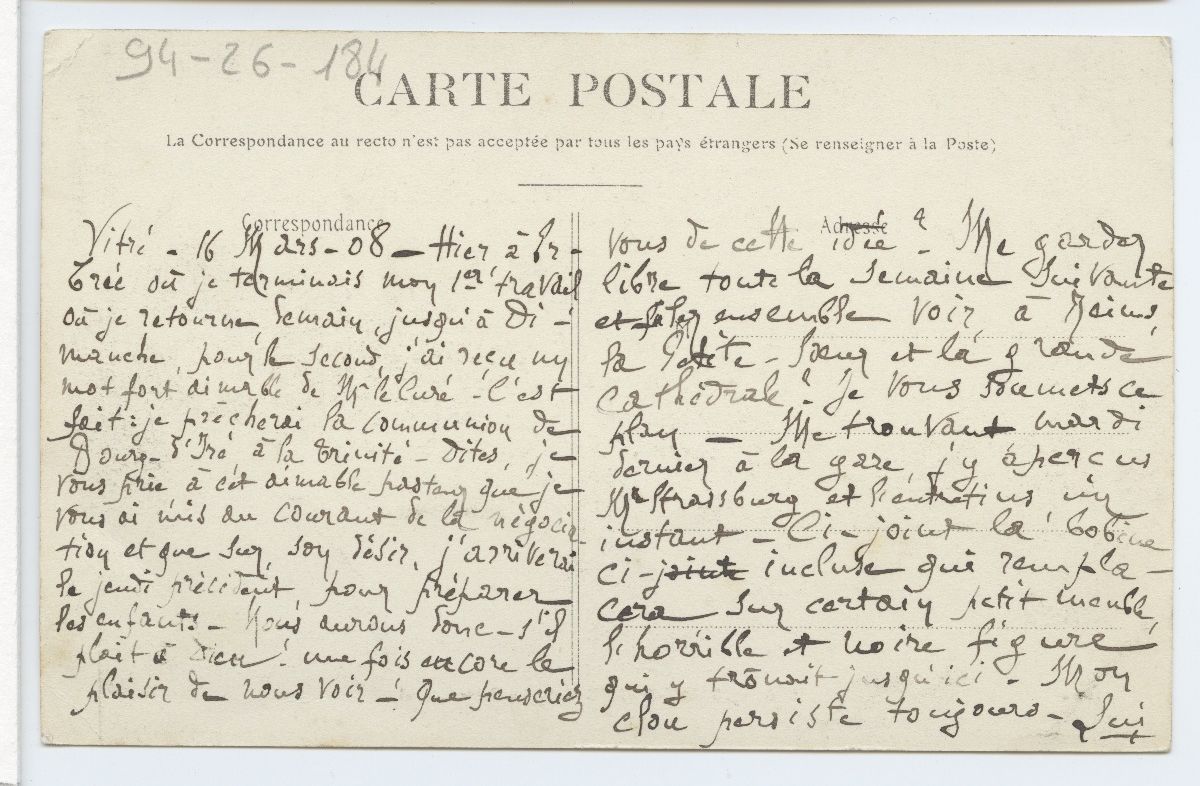 94-26-184
CARTE POSTALE
La Correspondance au recto n'est pas acceptée par tous les pays étrangers (Se renseigner à la Poste)
Correspondance
Vitré - 16 Mars - 08 - Hier à Er-
brée où je terminais mon 1er travail
où je retourne demain, jusqu'à Di-
manche, pour le second, j'ai reçu un
mot fort aimable de Mr le Curé - C'est
fait: je prêcherai la communion de
Bourg- d'Iré, à la trinité - Dites, je
vous prie à cet aimable pasteur que je
vous ai mis au courant de la négocia-
tion et que sur son désir, j'arriverai
le jeudi précédent pour préparer
les enfants - Nous aurons donc - s'il
plait à Dieu! une fois encore le
plaisir de nous voir -! Que penseriez
Adresse
vous de cette idée? Me garder
libre toute la semaine suivante
et aller ensemble voir à Reims,
la Petite-Soeur et la grande
Cathédrale? Je vous soumets ce
plan - Me trouvant mardi
dernier à la gare, j'y aperçus
Mr Strassburg et l'entretins un
instant - Ci-joint la bobine
ci-jointe incluse qui rempla-
cera sur certain petit meuble,
l'horrible et noire figure
qui y trônait jusqu'ici - Mon
clou persiste toujours -